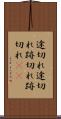 途切れ途切
れ跡切れ跡
切れ